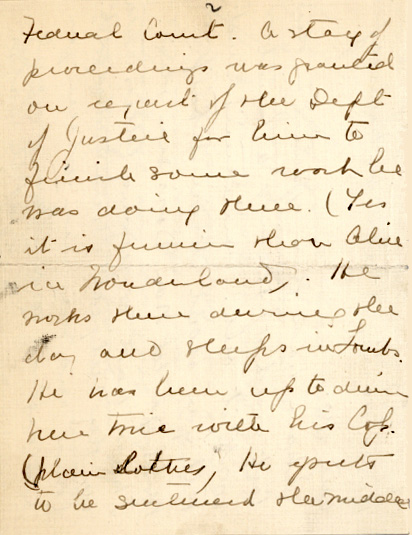 2
Federal Court. A stay of
proceedings was granted
on request of the Dept
of Justice for him to
finish some work he
was doing there. (Yes
it is funnier than Alice
in Wonderland). He
works there during the
day and sleeps in Tombs.
He has been up to dinner
here twice with his Cop.
(plain clothes) He expects
to be sentenced the middle